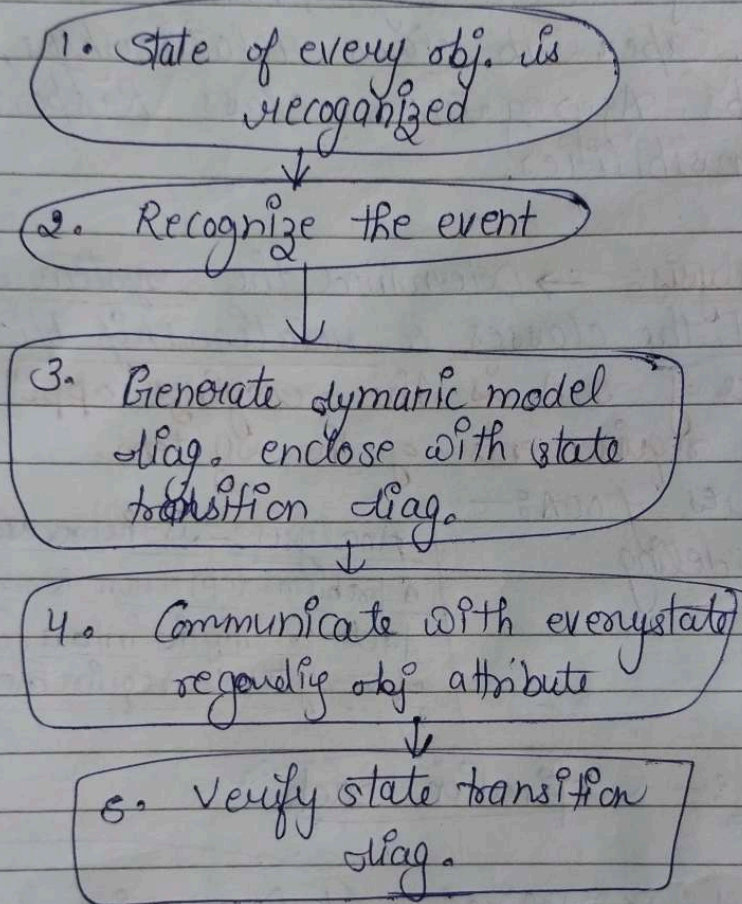 1. State of every obj. is
recoganized
2. Recognize the event
3. Generate dymanic model
diag. enclose with state
transition diag.
4. Communicate with everystate
regarding obj attribute
5. Verify state transition
diag.